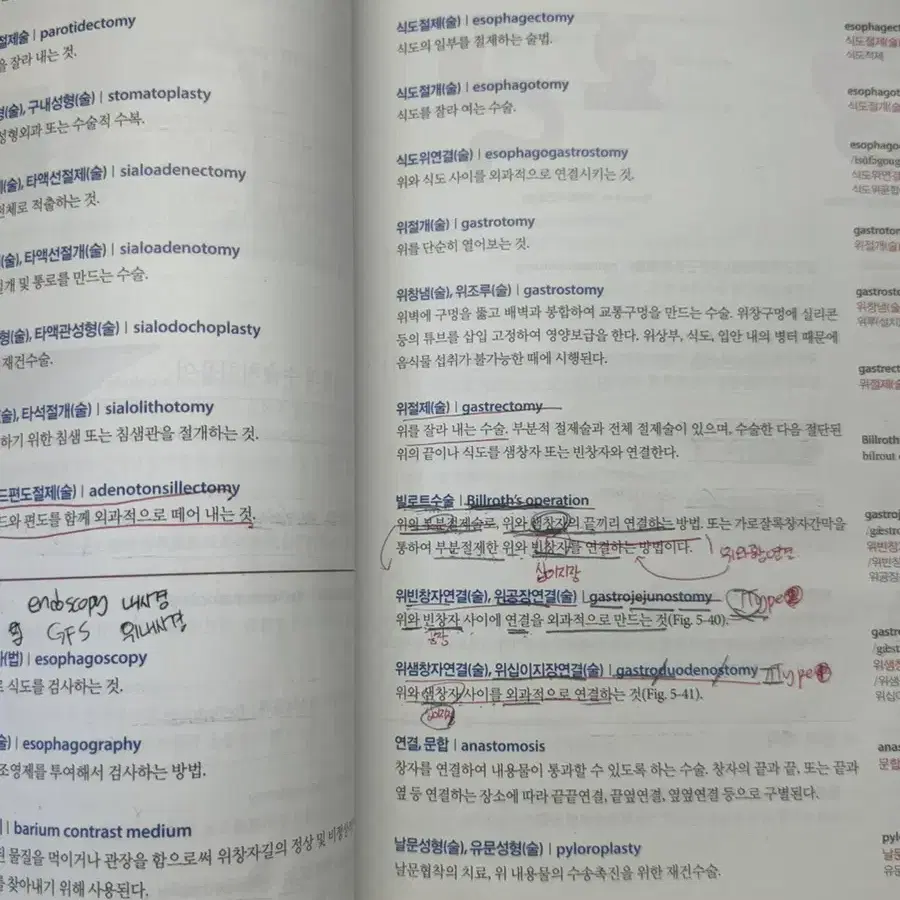 절제술 | parotidectomy
을 잘라 내는 것.
형(술), 구내성형(술) | stomatoplasty
성형외과 또는 수술적 수복.
(술), 타액선절제(술) | sialoadenectomy
전체로 적출하는 것.
(술), 타액선절개(술) | sialoadenotomy
절개 및 통로를 만드는 수술.
형(술), 타액관성형(술) | sialodochoplasty
재건수술.
(술), 타석절개(술) | sialolithotomy
하기 위한 침샘 또는 침샘관을 절개하는 것.
드편도절제(술) | adenotonsillectomy
드와 편도를 함께 외과적으로 떼어 내는 것.
endoscopy 내시경
GFS 위내시경
(법) | esophagoscopy
로 식도를 검사하는 것.
술) | esophagography
조영제를 투여해서 검사하는 방법.
| barium contrast medium
된 물질을 먹이거나 관장을 함으로써 위창자길의 정상 및 비정상
를 찾아내기 위해 사용된다.
식도절제(술) | esophagectomy
식도의 일부를 절제하는 술법.
식도절개(술) | esophagotomy
식도를 잘라 여는 수술.
식도위연결(술) | esophagogastrostomy
위와 식도 사이를 외과적으로 연결시키는 것.
위절개(술) | gastrotomy
위를 단순히 열어보는 것.
위창냄(술), 위조루(술) | gastrostomy
위벽에 구멍을 뚫고 배벽과 봉합하여 교통구멍을 만드는 수술. 위창구멍에 실리콘
등의 튜브를 삽입 고정하여 영양보급을 한다. 위상부, 식도, 입안 내의 병터 때문에
음식물 섭취가 불가능한 때에 시행된다.
위절제(술) | gastrectomy
위를 잘라 내는 수술. 부분적 절제술과 전체 절제술이 있으며, 수술한 다음 절단된
위의 끝이나 식도를 샘창자 또는 빈창자와 연결한다.
빌로트수술 | Billroth's operation
위의 부분절제술로, 위와 샘창자의 끝끼리 연결하는 방법. 또는 가로잘록창자간막을
통하여 부분절제한 위와 빈창자를 연결하는 방법이다.
십이지장
위와 공장 연결
위빈창자연결(술), 위공장연결(술) | gastrojejunostomy
Type 2
위와 빈창자 사이에 연결을 외과적으로 만드는 것(Fig. 5-40).
공장
위샘창자연결(술), 위십이지장연결(술) | gastroduodenostomy
Type 1
위와 샘창자 사이를 외과적으로 연결하는 것(Fig. 5-41).
십이지장
연결, 문합 | anastomosis
창자를 연결하여 내용물이 통과할 수 있도록 하는 수술. 창자의 끝과 끝, 또는 끝과
옆 등 연결하는 장소에 따라 끝끝연결, 끝옆연결, 옆옆연결 등으로 구별된다.
날문성형(술), 유문성형(술) | pyloroplasty
날문협착의 치료, 위 내용물의 수송촉진을 위한 재건수술.
esophagect
식도절제(술)
식도적제
esophagot
식도절개(술
esophagog
식도위연결
식도위문합
gastroton
위절개(술)
gastrosto
위창냄(술)
위루(설치
gastrect
위절제(술
Billroth
bilrout
gastroj
/gæstr
위빈창
/위빈창
위공장
gastr
/gæst
위샘창
/위샘
위십이
anas
문합
pylo
날문
유문